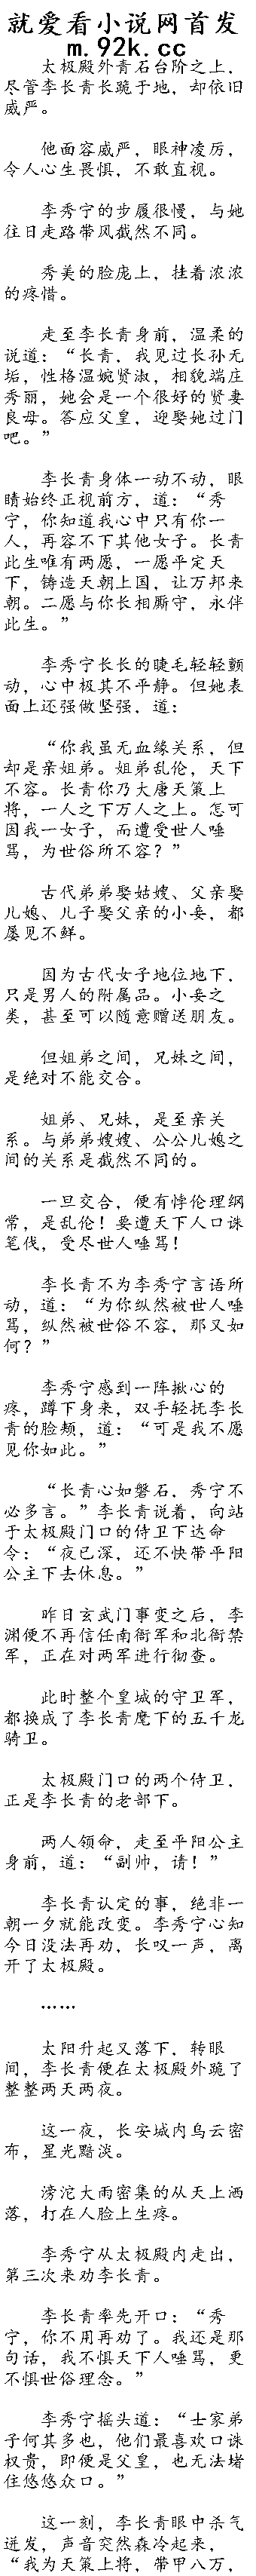 就爱看小说网首发
m.92k.cc
太极殿外青石台阶之上，
尽管李长青长跪于地，却依旧
威严。
他面容威严，眼神凌厉，
令人心生畏惧，不敢直视。
李秀宁的步履很慢，与她
往日走路带风截然不同。
秀美的脸庞上，挂着浓浓
的疼惜。
走至李长青身前，温柔的
说道：“长青，我见过长孙无
垢，性格温婉贤淑，相貌端庄
秀丽，她会是一个很好的贤妻
良母。答应父皇，迎娶她过门
吧。”
李长青身体一动不动，眼
睛始终正视前方，道：“秀
宁，你知道我心中只有你一
人，再容不下其他女子。长青
此生唯有两愿，一愿平定天
下，铸造天朝上国，让万邦来
朝。二愿与你长相厮守，永伴
此生。”
李秀宁长长的睫毛轻轻颤
动，心中极其不平静。但她表
面上还强做坚强，道：
“你我虽无血缘关系，但
却是亲姐弟。姐弟乱伦，天下
不容。长青你乃大唐天策上
将，一人之下万人之上。怎可
因我一女子，而遭受世人唾
骂，为世俗所不容？”
古代弟弟娶姑嫂、父亲娶
儿媳、儿子娶父亲的小妾，都
屡见不鲜。
因为古代女子地位地下，
只是男人的附属品。小妾之
类，甚至可以随意赠送朋友。
但姐弟之间，兄妹之间，
是绝对不能交合。
姐弟、兄妹，是至亲关
系。与弟弟嫂嫂、公公儿媳之
间的关系是截然不同的。
一旦交合，便有悖伦理纲
常，是乱伦！要遭天下人口诛
笔伐，受尽世人唾骂！
李长青不为李秀宁言语所
动，道：“为你纵然被世人唾
骂，纵然被世俗不容，那又如
何？”
李秀宁感到一阵揪心的
疼，蹲下身来，双手轻抚李长
青的脸颊，道：“可是我不愿
见你如此。”
“长青心如磐石，秀宁不
必多言。”李长青说着，向站
于太极殿门口的侍卫下达命
令：“夜已深，还不快带平阳
公主下去休息。”
昨日玄武门事变之后，李
渊便不再信任南衙军和北衙禁
军，正在对两军进行彻查。
此时整个皇城的守卫军，
都换成了李长青麾下的五千龙
骑卫。
太极殿门口的两个侍卫，
正是李长青的老部下。
两人领命，走至平阳公主
身前，道：“副帅，请！”
李长青认定的事，绝非一
朝一夕就能改变。李秀宁心知
今日没法再劝，长叹一声，离
开了太极殿。
……
太阳升起又落下，转眼
间，李长青便在太极殿外跪了
整整两天两夜。
这一夜，长安城内乌云密
布，星光黯淡。
滂沱大雨密集的从天上洒
落，打在人脸上生疼。
李秀宁从太极殿内走出，
第三次来劝李长青。
李长青率先开口：“秀
宁，你不用再劝了。我还是那
句话，我不惧天下人唾骂，更
不惧世俗理念。”
李秀宁摇头道：“士家弟
子何其多也，他们最喜欢口诛
权贵，即便是父皇，也无法堵
住悠悠众口。”
这一刻，李长青眼中杀气
迸发，声音突然森冷起来，
“我为天策上将，带甲八万，